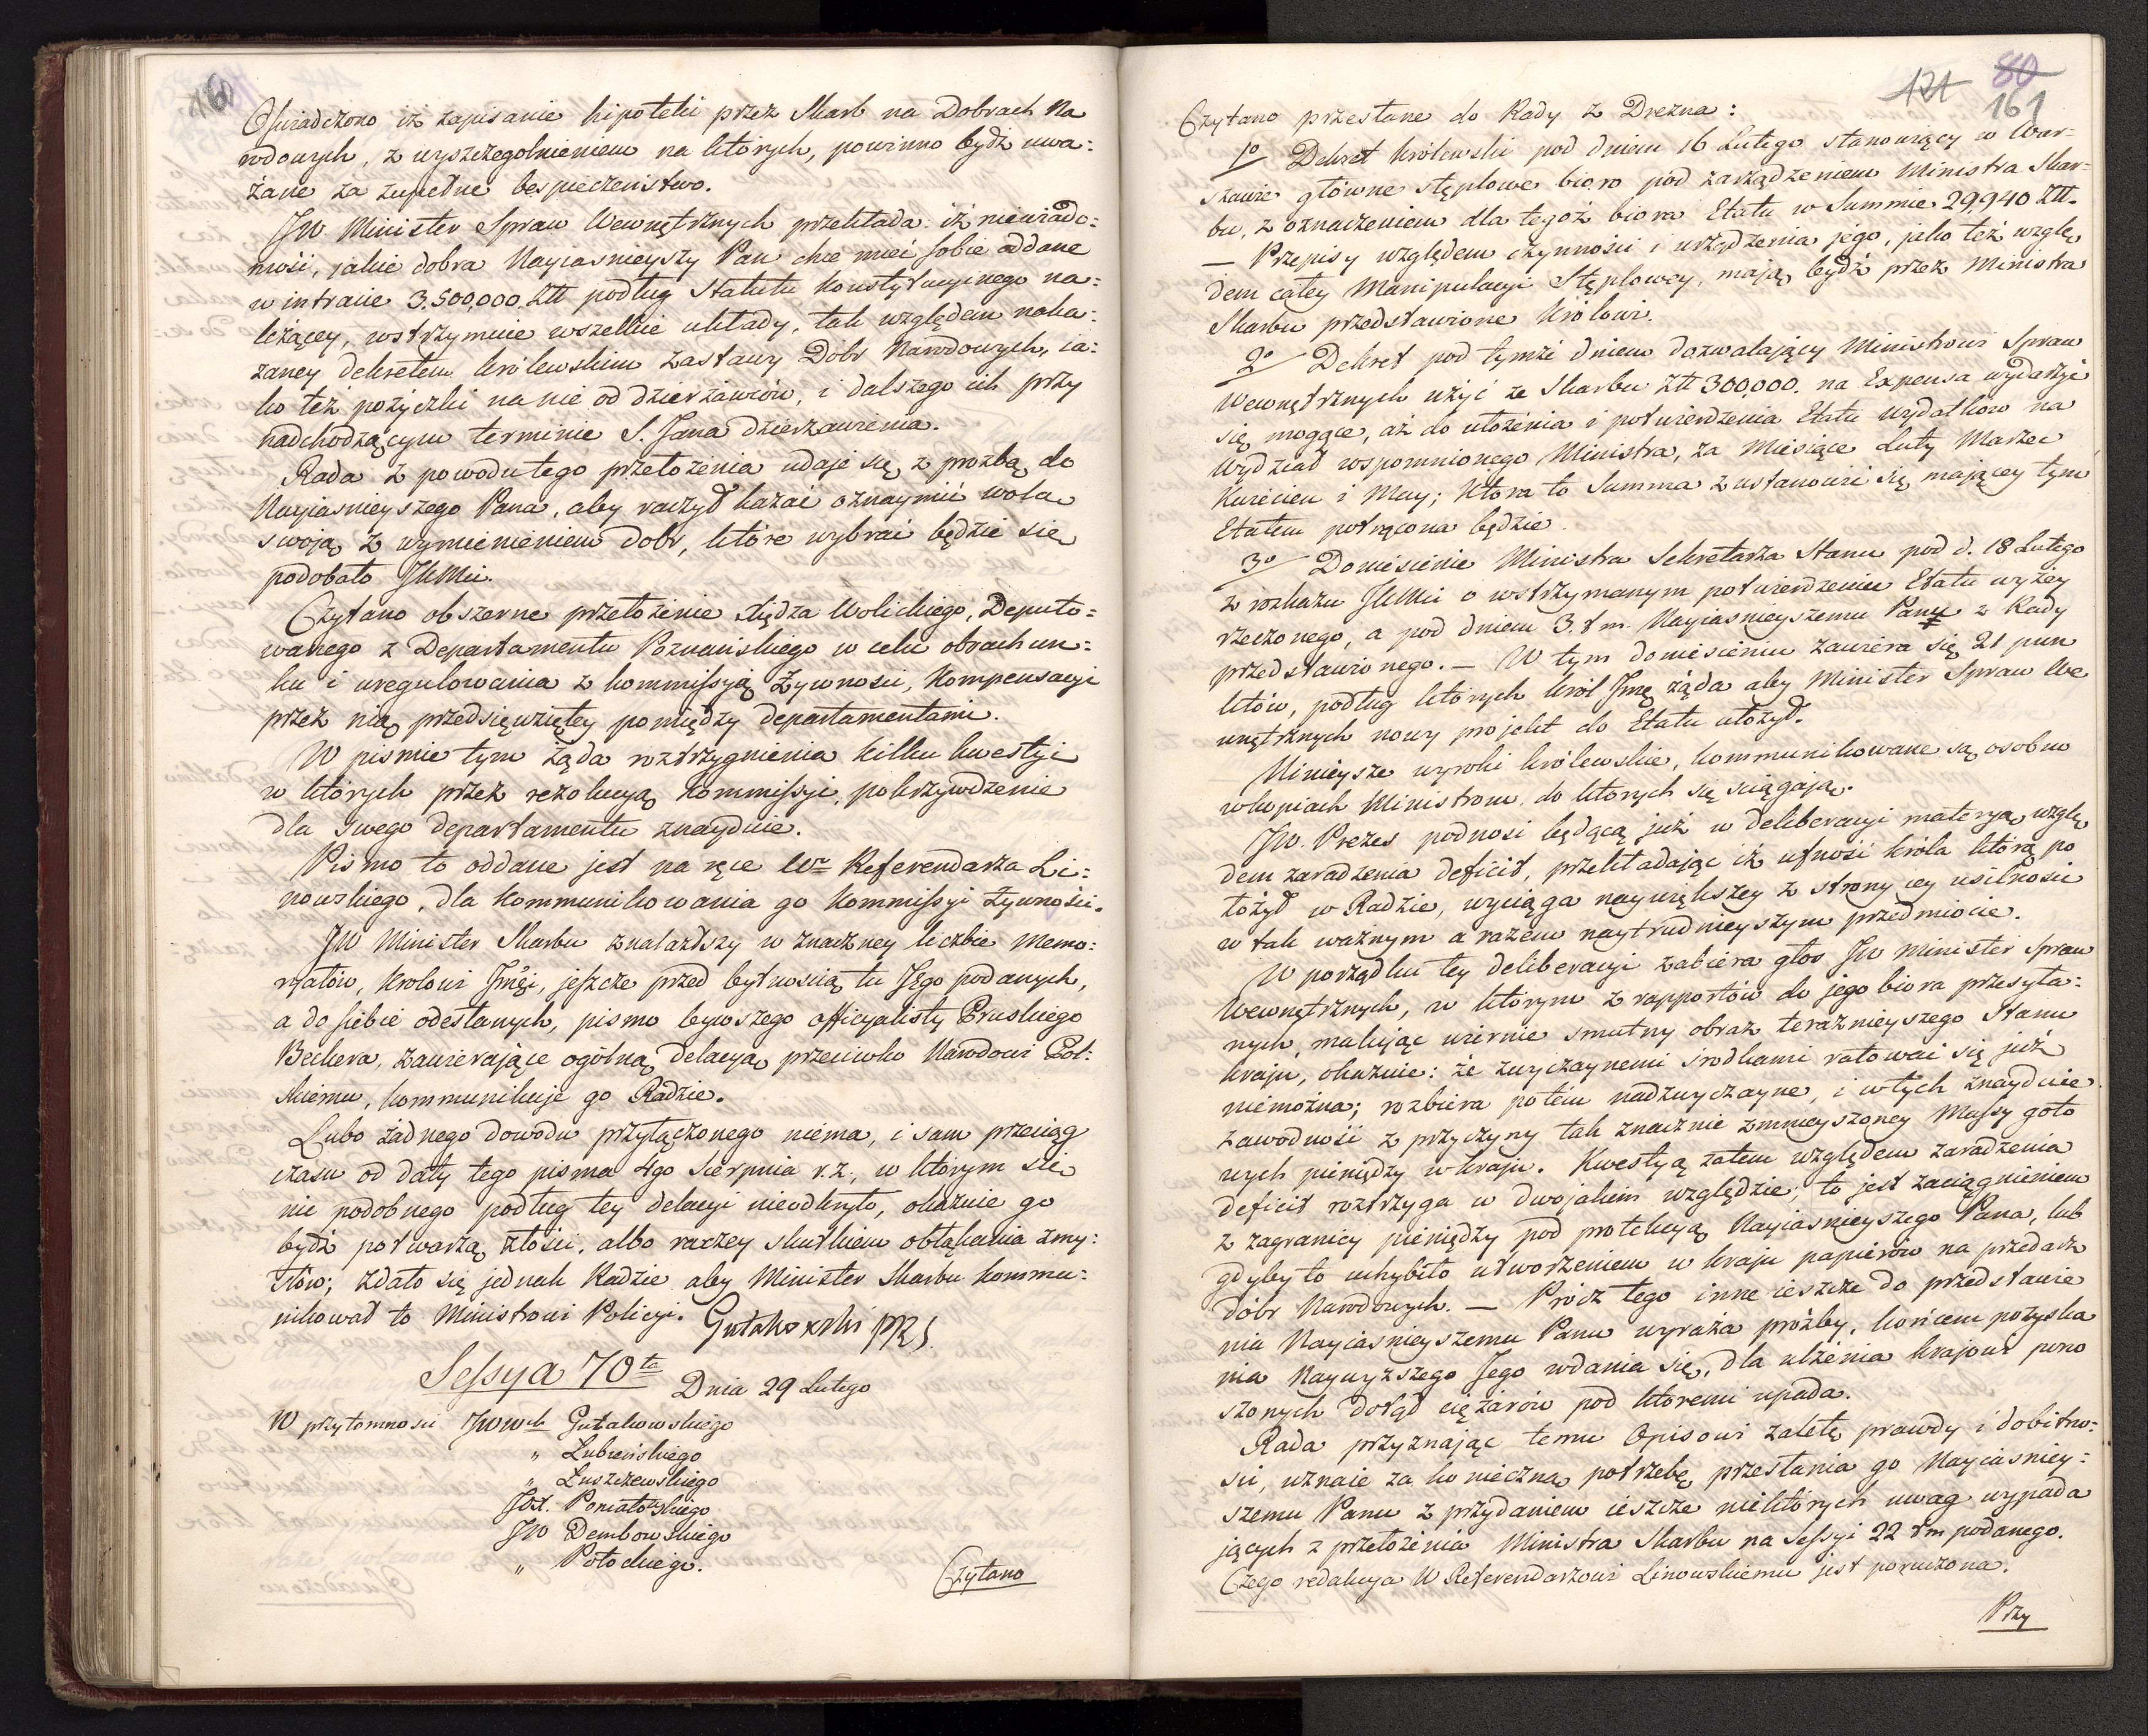 160
Oświadczono iż zapisanie hipoteki przez Skarb na Dobrach Na
rodowych, z wyszczegolnieniem na których, powinno bydź uwa:
żane za zupełne bespieczeństwo.
JW Minister Spraw Wewnętrznych przekłada: iż niewiado:
mość, jakie dobra Nayiasnieyszy Pan chce mieć sobie oddane
w intracie 3.500,000 Złł podług Statutu konstytucyinego na:
leżącey, wstrzymuie wszelkie układy, tak względem naka:
zaney dekretem królewskim zastawy Dóbr Narodowych, ia:
ko też pożyczki na nie od dzierżawców, i dalszego ich przy
nadchodzącym terminie S. Jana dzierzawienia.
Rada z powodu tego przełożenia udaje się z prozbą do
Nayiasnieyszego Pana, aby raczył kazać oznaymić wolą
swoją z wymienieniem dobr, które wybrać będzie się
podobało JKMci.
Czytano obszerne przełożenie Xiędza Wolickiego, Deputo:
wanego z Departamentu Poznańskiego w celu obrachun:
ku i uregulowania z kommissyą Żywności, Kompensacyi
przez nią przedsięwziętey pomiędzy departamentami.
W pismie tym żąda rozstrzygnienia kilku kwestyi
w których przez rezolucyą Kommissyi, pokrzywdzenie
dla swego departamentu znayduie.
Pismo to oddane jest na ręce Wo Referendarza Li:
nowskiego, dla kommunikowania go Kommissyi Żywności.
JW Minister Skarbu znalazłszy w znaczney liczbie memo:
ryałów, Krolowi Jmći, jeszcze przed bytnością tu Jego podanych,
a do siebie odesłanych, pismo bywszego officyalisty Pruskiego
Beckera, zawierające ogólną delacyą przeciwko Narodowi Pol:
skiemu, kommunikuje go Radzie.
Lubo żadnego dowodu przyłączonego niema, i sam przeciąg
czasu od daty tego pisma 4go Sierpnia r.z., w którym się
nic podobnego podług tey delacyi nieodkryło, okazuie go
bydź potwarzą złości, albo raczey skutkiem obłąkania zmy:
słów; zdało się jednak Radzie aby Minister Skarbu kommu:
nikował to Ministrowi Policyi. Gutakowski PRS.
Sessya 70ta
Dnia 29 Lutego
W przytomności JWWch Gutakowskiego
" Łubieńskiego
" Łuszczewskiego
JOX. Poniatowskiego
JW Dembowskiego
" Potockiego.
Czytano
121 80
161
Czytano przesłane do Rady z Drezna:
1o Dekret królewski pod dniem 16 Lutego stanowiący w War:
szawie główne stęplowe bioro pod zarządzeniem Ministra Skar:
bu, z oznaczeniem dla tegoż biora Etatu w Summie 29,940 Złł.
— Przepisy względem czynności i urządzenia jego, jako też wzglę
dem całey Manipulacyi Stęplowey, mają bydź przez Ministra
Skarbu przedstawione Królowi.
2o Dekret pod tymże dniem dozwalający Ministrowi Spraw
Wewnętrznych użyć ze Skarbu Złł 300,000. na Expensa wydarzyć
się mogące, aż do ułożenia i potwierdzenia Etatu wydatków na
Wydział wspomnionego Ministra, za Miesiące Luty Marzec
Kwiecień i May; Która to Summa z ustanowić się mającey tym
Etatem potrącona będzie.
3o Doniesienie Ministra Sekretarza Stanu pod d. 18 Lutego
z rozkazu JKMci o wstrzymanym potwierdzeniu Etatu wyżey
rzeczonego, a pod dniem 3. t m. Nayiasnieyszemu Panu z Rady
przedstawionego. — W tym doniesieniu zawiera się 21 pun
któw, podług których król Jmć żąda aby Minister Spraw We
wnętrznych nowy projekt do Etatu ułożył.
Ninieysze wyroki królewskie, kommunikowane są osobno
w kopiach Ministrom, do ktorych się ściągają.
JW. Prezes podnosi będącą już w deliberacyi materyą wzglę
dem zaradzenia deficit, przekładając iż ufność króla którą po
łożył w Radzie, wyciąga naywiększey z strony iey usilności
w tak ważnym a razem naytrudnieyszym przedmiocie.
W porządku tey deliberacyi zabiera głos JW Minister Spraw
Wewnętrznych, w którym z rapportów do jego biora przesyła:
nych, malując wiernie smutny obraz teraznieyszego Stanu
kraju, okazuie: że zwyczaynemi środkami ratować się już
niemożna; rozbiera potém nadzwyczayne, i w tych znayduie
zawodność z przyczyny tak znacznie zmnieyszoney Massy goto
wych pieniędzy w kraju. Kwestyą zatem względem zaradzenia
deficit rozstrzyga w dwojakim względzie; to jest zaciągnieniem
z zagranicy pieniędzy pod protekcyą Nayiasnieyszego Pana, lub
gdyby to uchybiło utworzeniem w kraju papierów na przedaż
dóbr Narodowych. — Prócz tego inne ieszcze do przedstawie
nia Nayiasnieyszemu Panu wyraża prózby, końcem pozyska
nia Naywyższego Jego wdania się, dla ulżenia krajowi pono
szonych dotąd ciężarów pod któremi upada.
Rada przyznając temu Opisowi zaletę prawdy i dobitno:
ści, uznaie za konieczną potrzebę przesłania go Nayiasniey:
szemu Panu z przydaniem ieszcze niektórych uwag wypada
jących z przełożenia Ministra Skarbu na Sessyi 22 t m podanego.
Czego redakcya W Referendarzowi Linowskiemu jest poruczona.
Przy